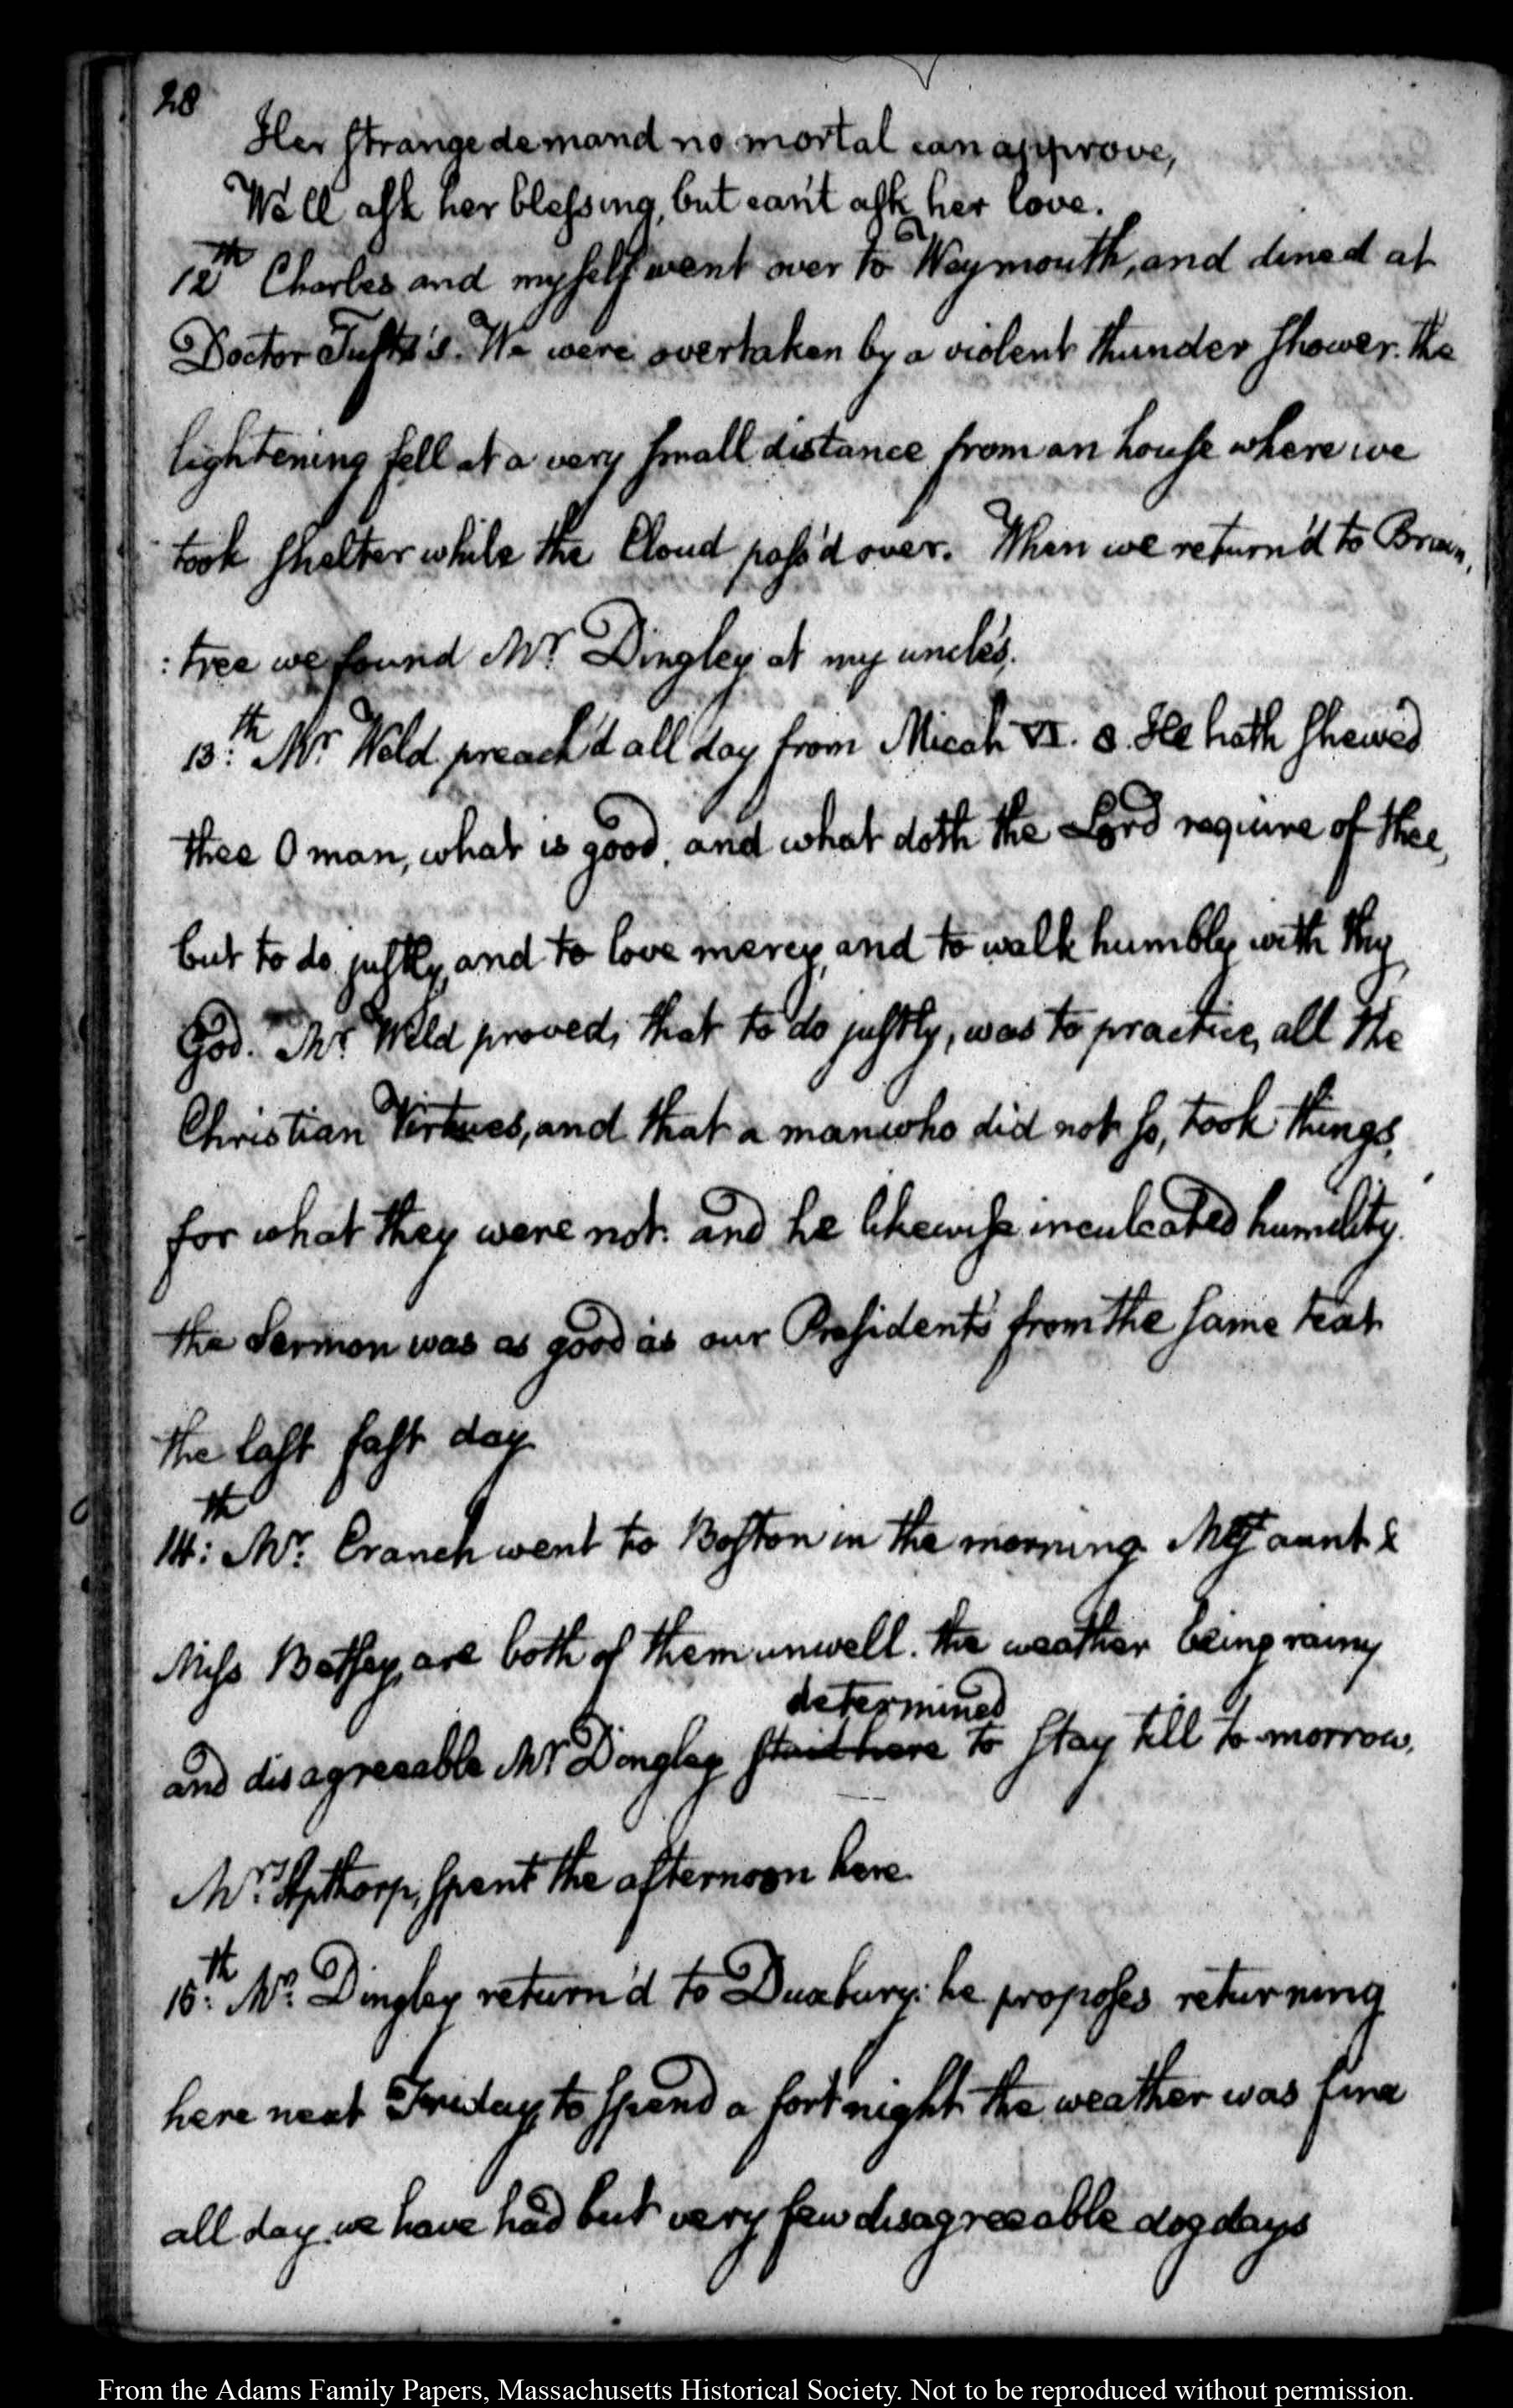 28
Her strange demand no mortal can approve,
We'll ask her blessing, but can't ask her love.
12th Charles and myself went over to Weymouth, and dined at
Doctor Tufts's. We were overtaken by a violent thunder shower. the
lightening fell at a very small distance from an house where we
took shelter while the Cloud pass'd over. When we return'd to Brain,
: tree we found Mr Dingley at my uncle's.
13:th Mr Weld preach'd all day from Micah VI. 8. He hath shewed
thee O man, what is good; and what doth the Lord require of thee,
but to do justly, and to love mercy, and to walk humbly with thy
God. Mr. Weld proved, that to do justly, was to practice, all the
Christian Virtues, and that a man who did not so, took things,
for what they were not. and he likewise inculcated humility.
the Sermon was as good as our President's from the same text
the last fast day.
14:th Mr. Cranch went to Boston in the morning. My aunt &
Miss Betsey, are both of them unwell. the weather being rainy
determined
and disagreeable Mr Dingley staid here to stay till to-morrow.
Mr. Apthorp, spent the afternoon here.
15:th Mr. Dingley return'd to Duxbury: he proposes returning
here next Friday, to spend a fortnight. the weather was fine
all day. we have had but very few disagreeable dog days
From the Adams Family Papers, Massachusetts Historical Society. Not to be reproduced without permission.